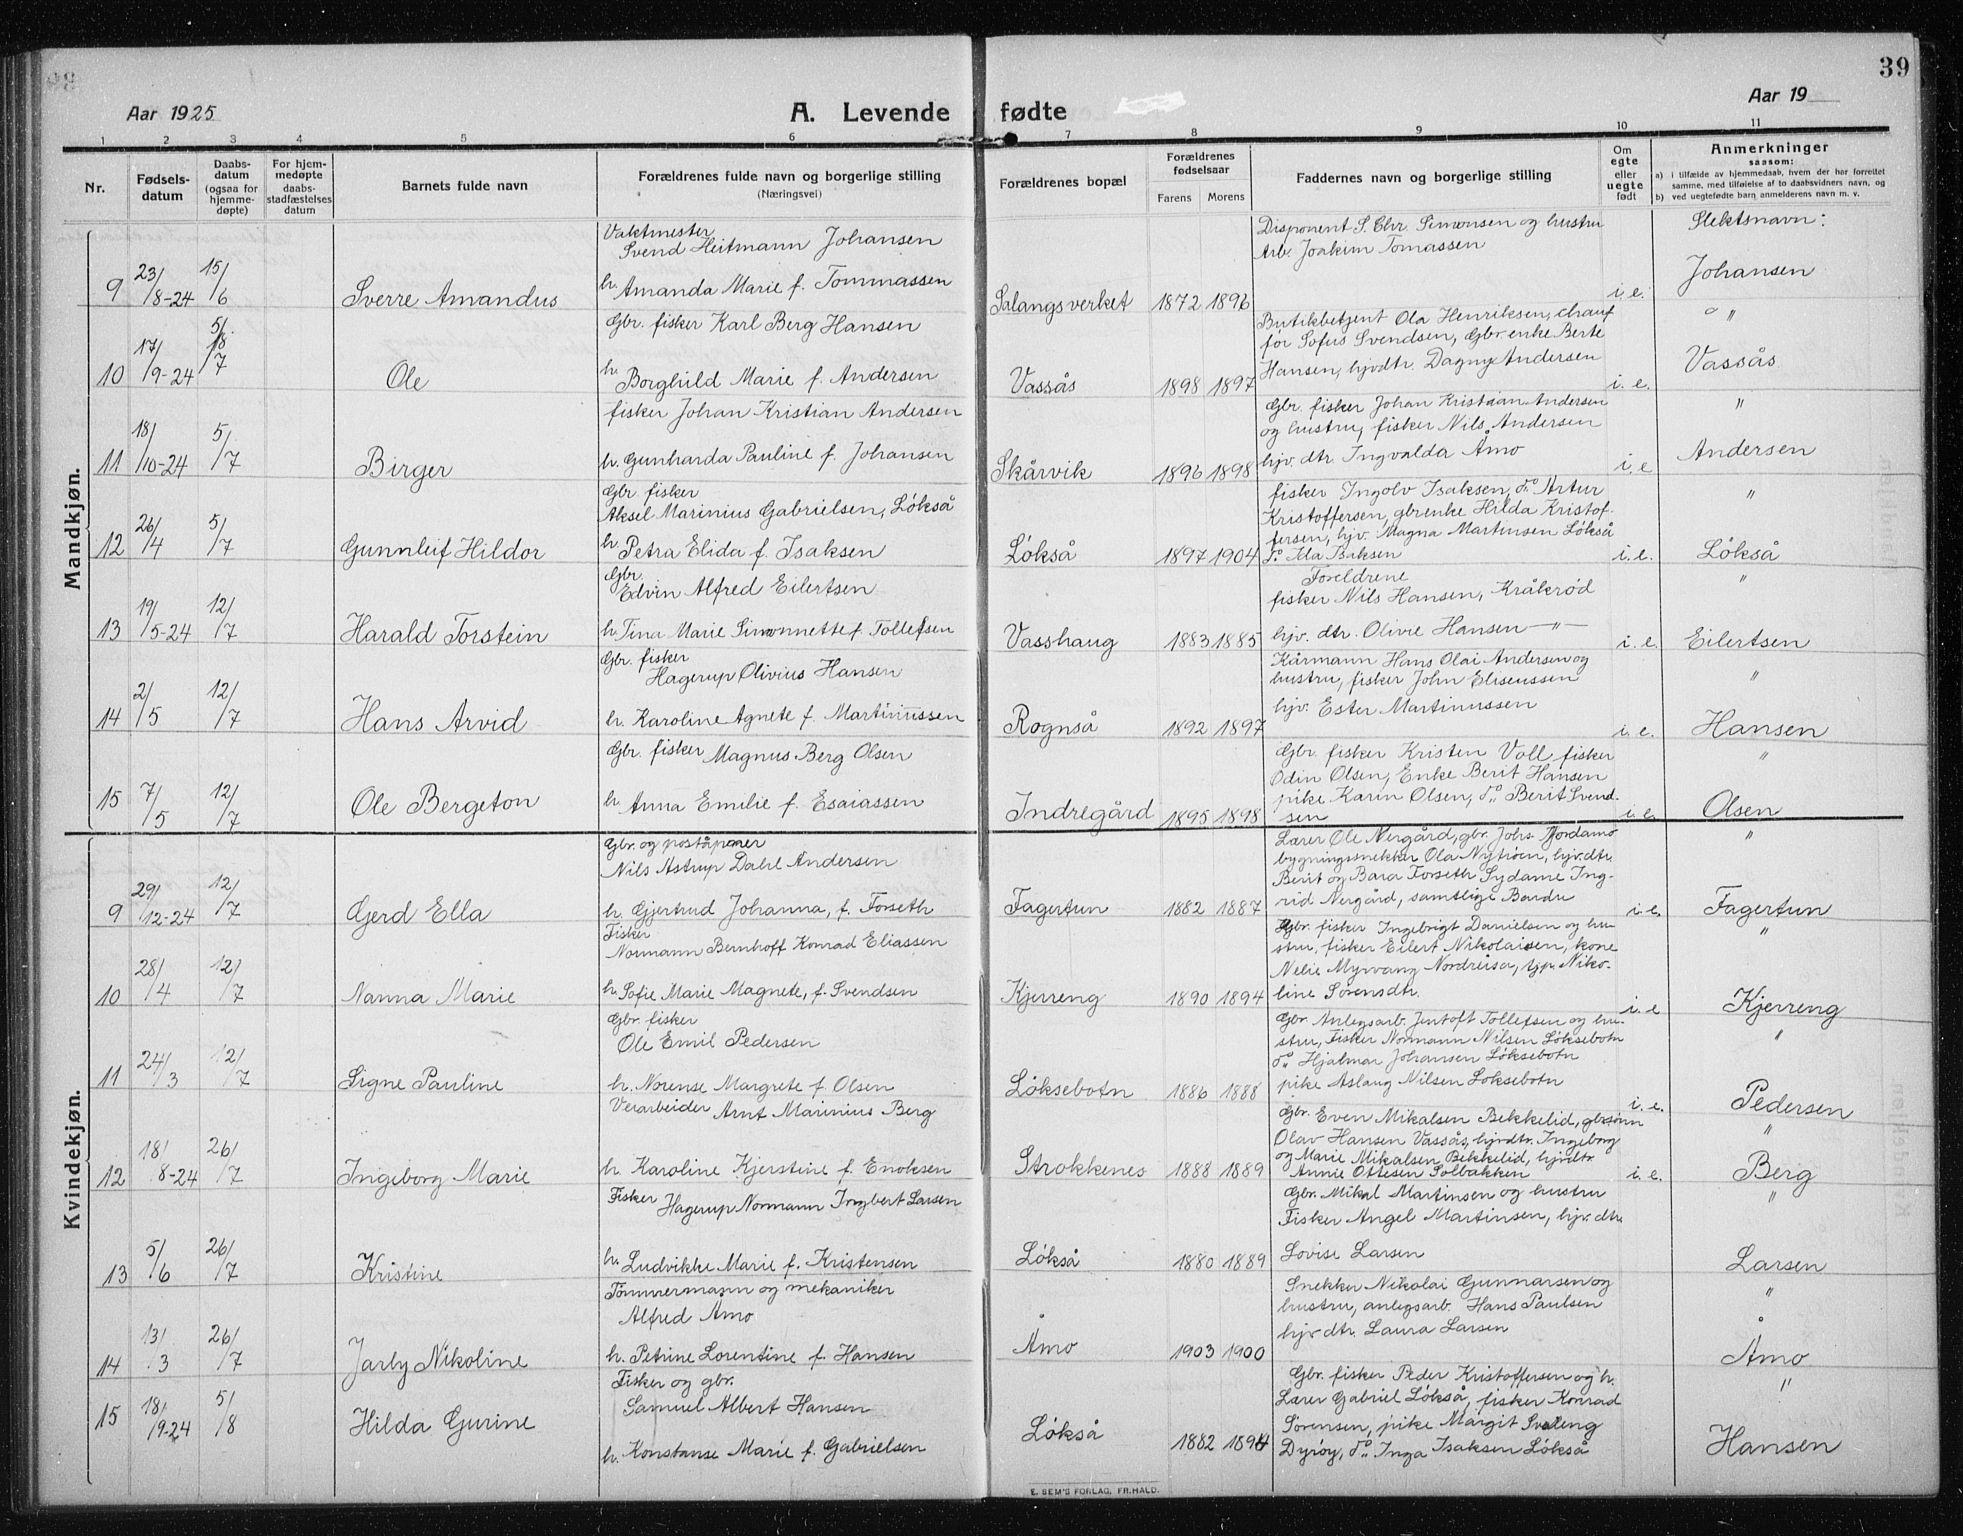 39
Aar 1925
A. Levende fødte
Aar 19
1 2 3 4 5 6 7 8 9 10 11
Nr.
Fødsels-datum
Daabs-datum (ogsaa for hjemme-døpte)
For hjem-medøpte daabs-stadfæstelses datum
Barnets fulde navn
Forældrenes fulde navn og borgerlige stilling
(Næringsvei)
Forældrenes bopæl
Forældrenes fødselsaar
Farens Morens
Faddernes navn og borgerlige stilling
Om egte eller uegte født
Anmerkninger
saasom:
a) i tilfælde av hjemmedaab, hvem der har forrettet samme, med tilføielse af to daabsvidners navn, og
b) ved uegtefødte barn anmelderens navn m. v.
Mandkjøn.
Slektsnavn:
9 23/8-24 15/6 Sverre Amandus
Vaktmester
Svend Heitmann Johansen
h. Amanda Marie f. Tommassen
Salangsverket 1872 1896
Disponent S. Chr. Simonsen og hustru
Arb. Joakim Tomassen
i.e. Johansen
10 17/9-24 5/7 Ole
Gbr. fisker Karl Berg Hansen
h. Borghild Marie f. Andersen
Vassås 1898 1897
Butikbetjent Ola Henriksen, chauf
før Sofus Svendsen, Gbr.enke Berte
Hansen, hjvdtr. Dagny Andersen
i.e. " Vassås
11 18/10-24 5/7 Birger
fisker Johan Kristian Andersen
h. Gunharda Pauline f. Johansen
Skårvik 1896 1898
Gbr. fisker Johan Kristian Andersen
og hustru, fisker Nils Andersen
hjv. dtr. Ingvalda Åmo
i.e " Andersen
12 26/4 5/7 Gunnleif Hildor
Gbr. fisker
Aksel Marinius Gabrielsen, Løkså
h. Petra Elida f. Isaksen
Løkså 1897 1904
fisker Ingolv Isaksen, do Artur
Kristoffersen, gbrenke Hilda Kristof-
fersen, hjv. Magna Martinsen Løkså
do Ida Isaksen
i.e. " Løkså
13 19/5-24 12/7 Harald Torstein
Gbr.
Edvin Alfred Eilertsen
h. Tina Marie Simonnette f. Tollefsen
Vasshaug 1883 1885
Foreldrene
fisker Nils Hansen, Kråkrød
hjv. dtr. Olivie Hansen — " —
i.e. " Eilertsen
14 2/5 12/7 Hans Arvid
Gbr. fisker
Hagerup Olivius Hansen
h. Karoline Agnete f. Martinussen
Rognså 1892 1897
Kårmann Hans Olai Andersen og
hustru, fisker John Eliseussen
hjv. Ester Martinussen
i.e. " Hansen
15 7/5 12/7 Ole Bergeton
Gbr. fisker Magnus Berg Olsen
h. Anna Emilie f. Esaiassen
Indregård 1895 1898
Gbr. fisker Kristen Voll fisker
Odin Olsen, Enke Berit Hansen
pike Karin Olsen, do Berit Svend-
sen
i.e. " Olsen
Kvindekjøn.
9 29/12-24 12/7 Gerd Ella
Gbr. og poståpner
Nils Astrup Dahl Andersen
h. Gjertrud Johanna, f. Forseth
Fagertun 1882 1887
Lærer Ole Nergård, gbr. Johs.
bygningssnekker Ola Nytrøen, hjv.dtr.
Berit og Bara Forseth Ing-
rid Nergård, samtlige Bardu
i.e. " Fagertun
10 28/4 12/7 Nanna Marie
Fisker
Normann Bernhoff Konrad Eliassen
h. Sofie Marie Magnete, f. Svendsen
Kjerreng 1890 1894
Gbr. fisker Ingebrigt Danielsen og hu-
stru, fisker Eilert Nikolaisen, kone
Nelie Myrvang Nordreisa, tjp. Niko-
line Sørensdtr.
i.e " Kjerreng
11 24/3 12/7 Signe Pauline
Gbr. fisker
Ole Emil Pedersen
h. Norense Margrete f. Olsen
Løksebotn 1886 1888
Gbr. Anlegsarb. Jentoft Tollefsen og hu-
stru, Fisker Normann Nilsen Løksebotn
do Hjalmar Johansen Løksebotn
pike Aslaug Nilsen Løksebotn
i.e. " Pedersen
12 18/8-24 26/7 Ingeborg Marie
Verarbeider Arnt Marinius Berg
h. Karoline Kjerstine f. Enoksen
Strokkenes 1888 1889
Gbr. Even Mikalsen Bekkelid, gbrsønn
Olav Hansen Vassås, hjvdtr. Ingeborg
og Marie Mikalsen Bekkelid, hjvdtr.
Annie Ottesen Solbakken
i.e. " Berg
13 5/6 26/7 Kristine
Fisker Hagerup Normann Ingbert Larsen
h. Ludvikke Marie f. Kristensen
Løkså 1880 1889
Gbr. Mikal Martinsen og hustru
Fisker Angel Martinsen, hjv. dtr.
Lovise Larsen
" Larsen
14 13/3 26/7 Jarly Nikoline
Tømmermann og mekaniker
Alfred Åmo
h. Petrine Lorentine f. Hansen
Åmo 1903 1900
Snekker Nikolai Gunnarsen og
hustru, anlegsarb. Hans Paulsen
hjv. dtr. Laura Larsen
" Åmo
15 18/9-24 5/8 Hilda Gurine
Fisker og gbr.
Samuel Albert Hansen
h. Konstanse Marie f. Gabrielsen
Løkså 1882 1894
Gbr. fisker Peder Kristoffersen og h.
Lærer Gabriel Løkså, fisker Konrad
Sørensen, pike Margit Svaleng
Dyrøy, do Inga Isaksen Løkså
" Hansen
E. SEM'S FORLAG, FR.HALD.